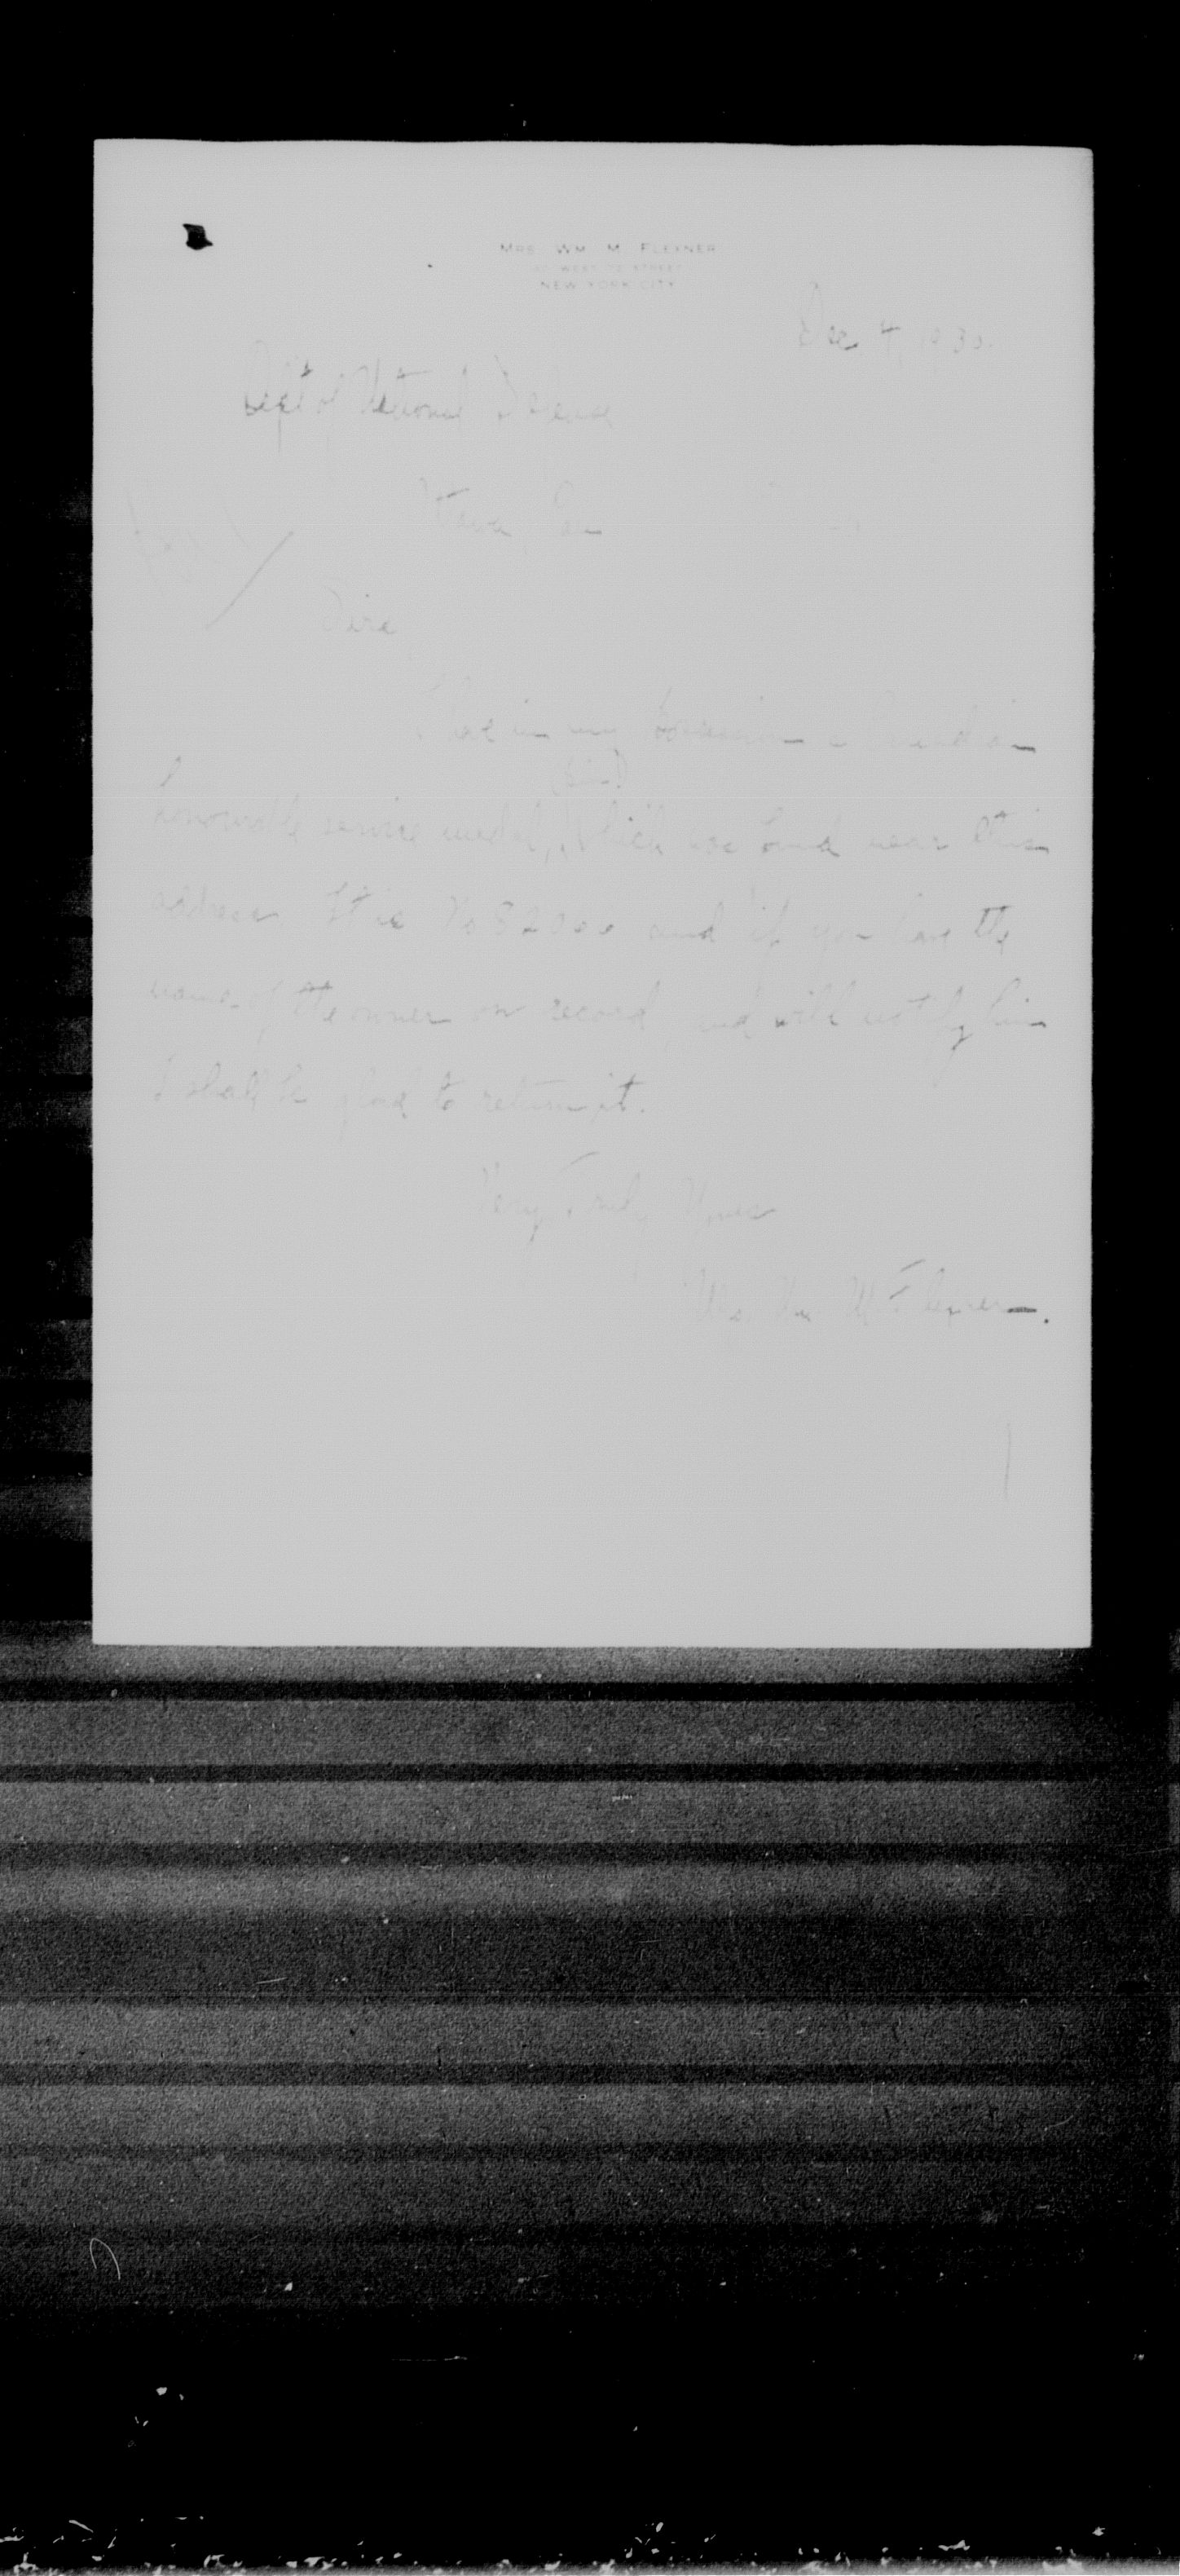 MRS. WM. M. FLEXNER
WEST STREET
NEW YORK CITY
Dec 4, 193
Dept of National Defense
Ottawa, Can
Sirs
I have in my possession a Canadian
(pin)
honourable service medal, which was found near this
address. It is No and if you have the
name of the owner on record, and will notify him
I shall be glad to return it.
Very Truly Yours
Mrs. Wm. M. Flexner.